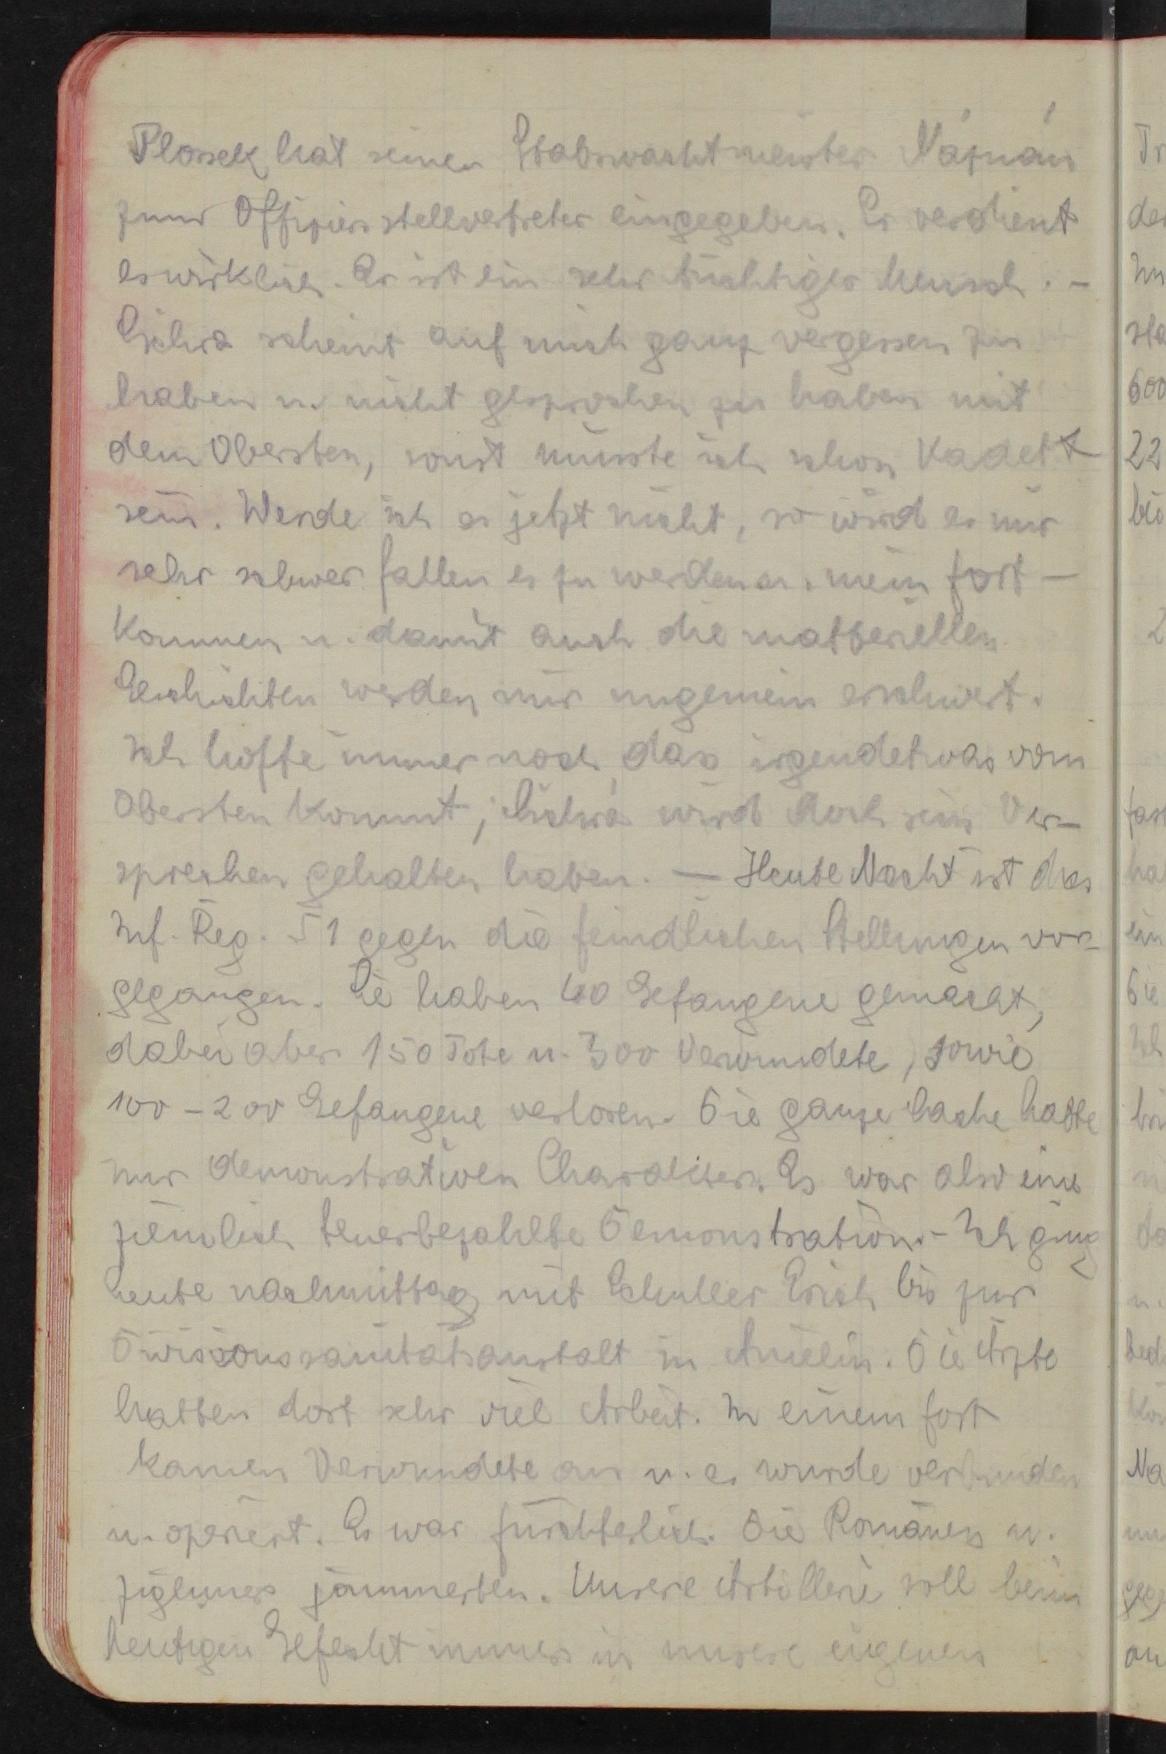 Plossek hat seinen Stabswachtmeister Náznán
zum Offiziersstellvertreter eingegeben. Er verdient
es wirklich. Er ist ein sehr tüchtiger Mensch. -
scheint auf mich ganz vergessen zu
haben u. nicht gesprochen zu haben mit
dem Obersten, sonst müsste ich schon Kadett
sein. Werde ich es jetzt nicht, so wird es mir
sehr schwer fallen es zu werden u. mein fort-
kommen u. damit auch die matteriellen
Geschichten werden mir ungemein erschwert.
Ich hoffe immer noch, dass irgendetwas vom
Obersten kommt; wird doch sein Ver-
sprechen gehalten haben. — Heute Nacht ist das
Inf. Reg. 51 gegen die feindlichen Stellungen vor-
gegangen. Sie haben 40 Gefangene gemacht,
dabei aber 150 Tote u. 300 Verwundete, sowie
100 - 200 Gefangene verloren. Die ganze Sache hatte
nur demonstrativen Charakter. Es war also eine
ziemlich teuerbezahlte Demonstration. - Ich ging
heute nachmittag mit Schuller Erich bis zur
Divisionssanitätsanstalt in Anielin. Die Ärzte
hatten dort sehr viel Arbeit. In einem fort
kamen Verwundete an u. es wurde verbunden
u. operiert. Es war fürchterlich. Die Romänen u.
Zigeuner jammerten. Unsere Artillerie soll beim
heutigen Gefecht immer in unsere eigenen